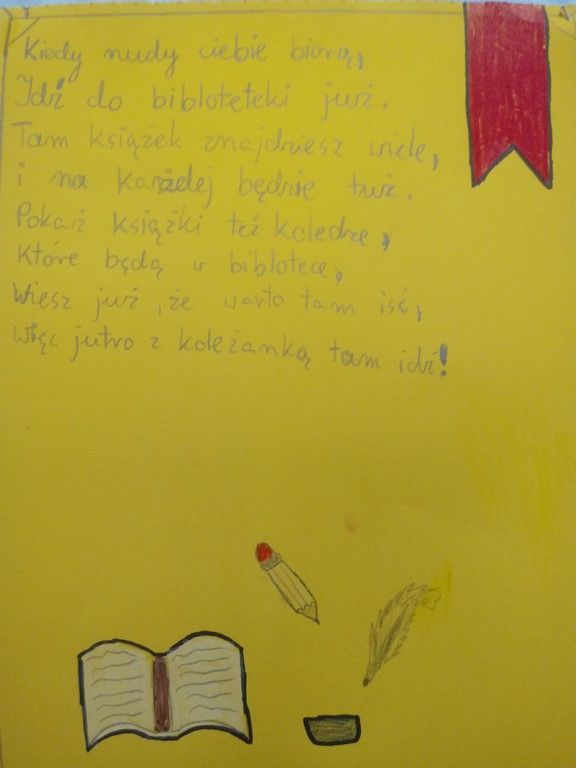 Kiedy nudy ciebie biorą,
Idź do biblioteteki już.
Tam książek znajdziesz wiele,
i na każdej będzie tuż.
Pokaż książki też koledze,
Które będą w bibliotece,
Wiesz już, że warto tam iść,
więc jutro z koleżanką tam idź!